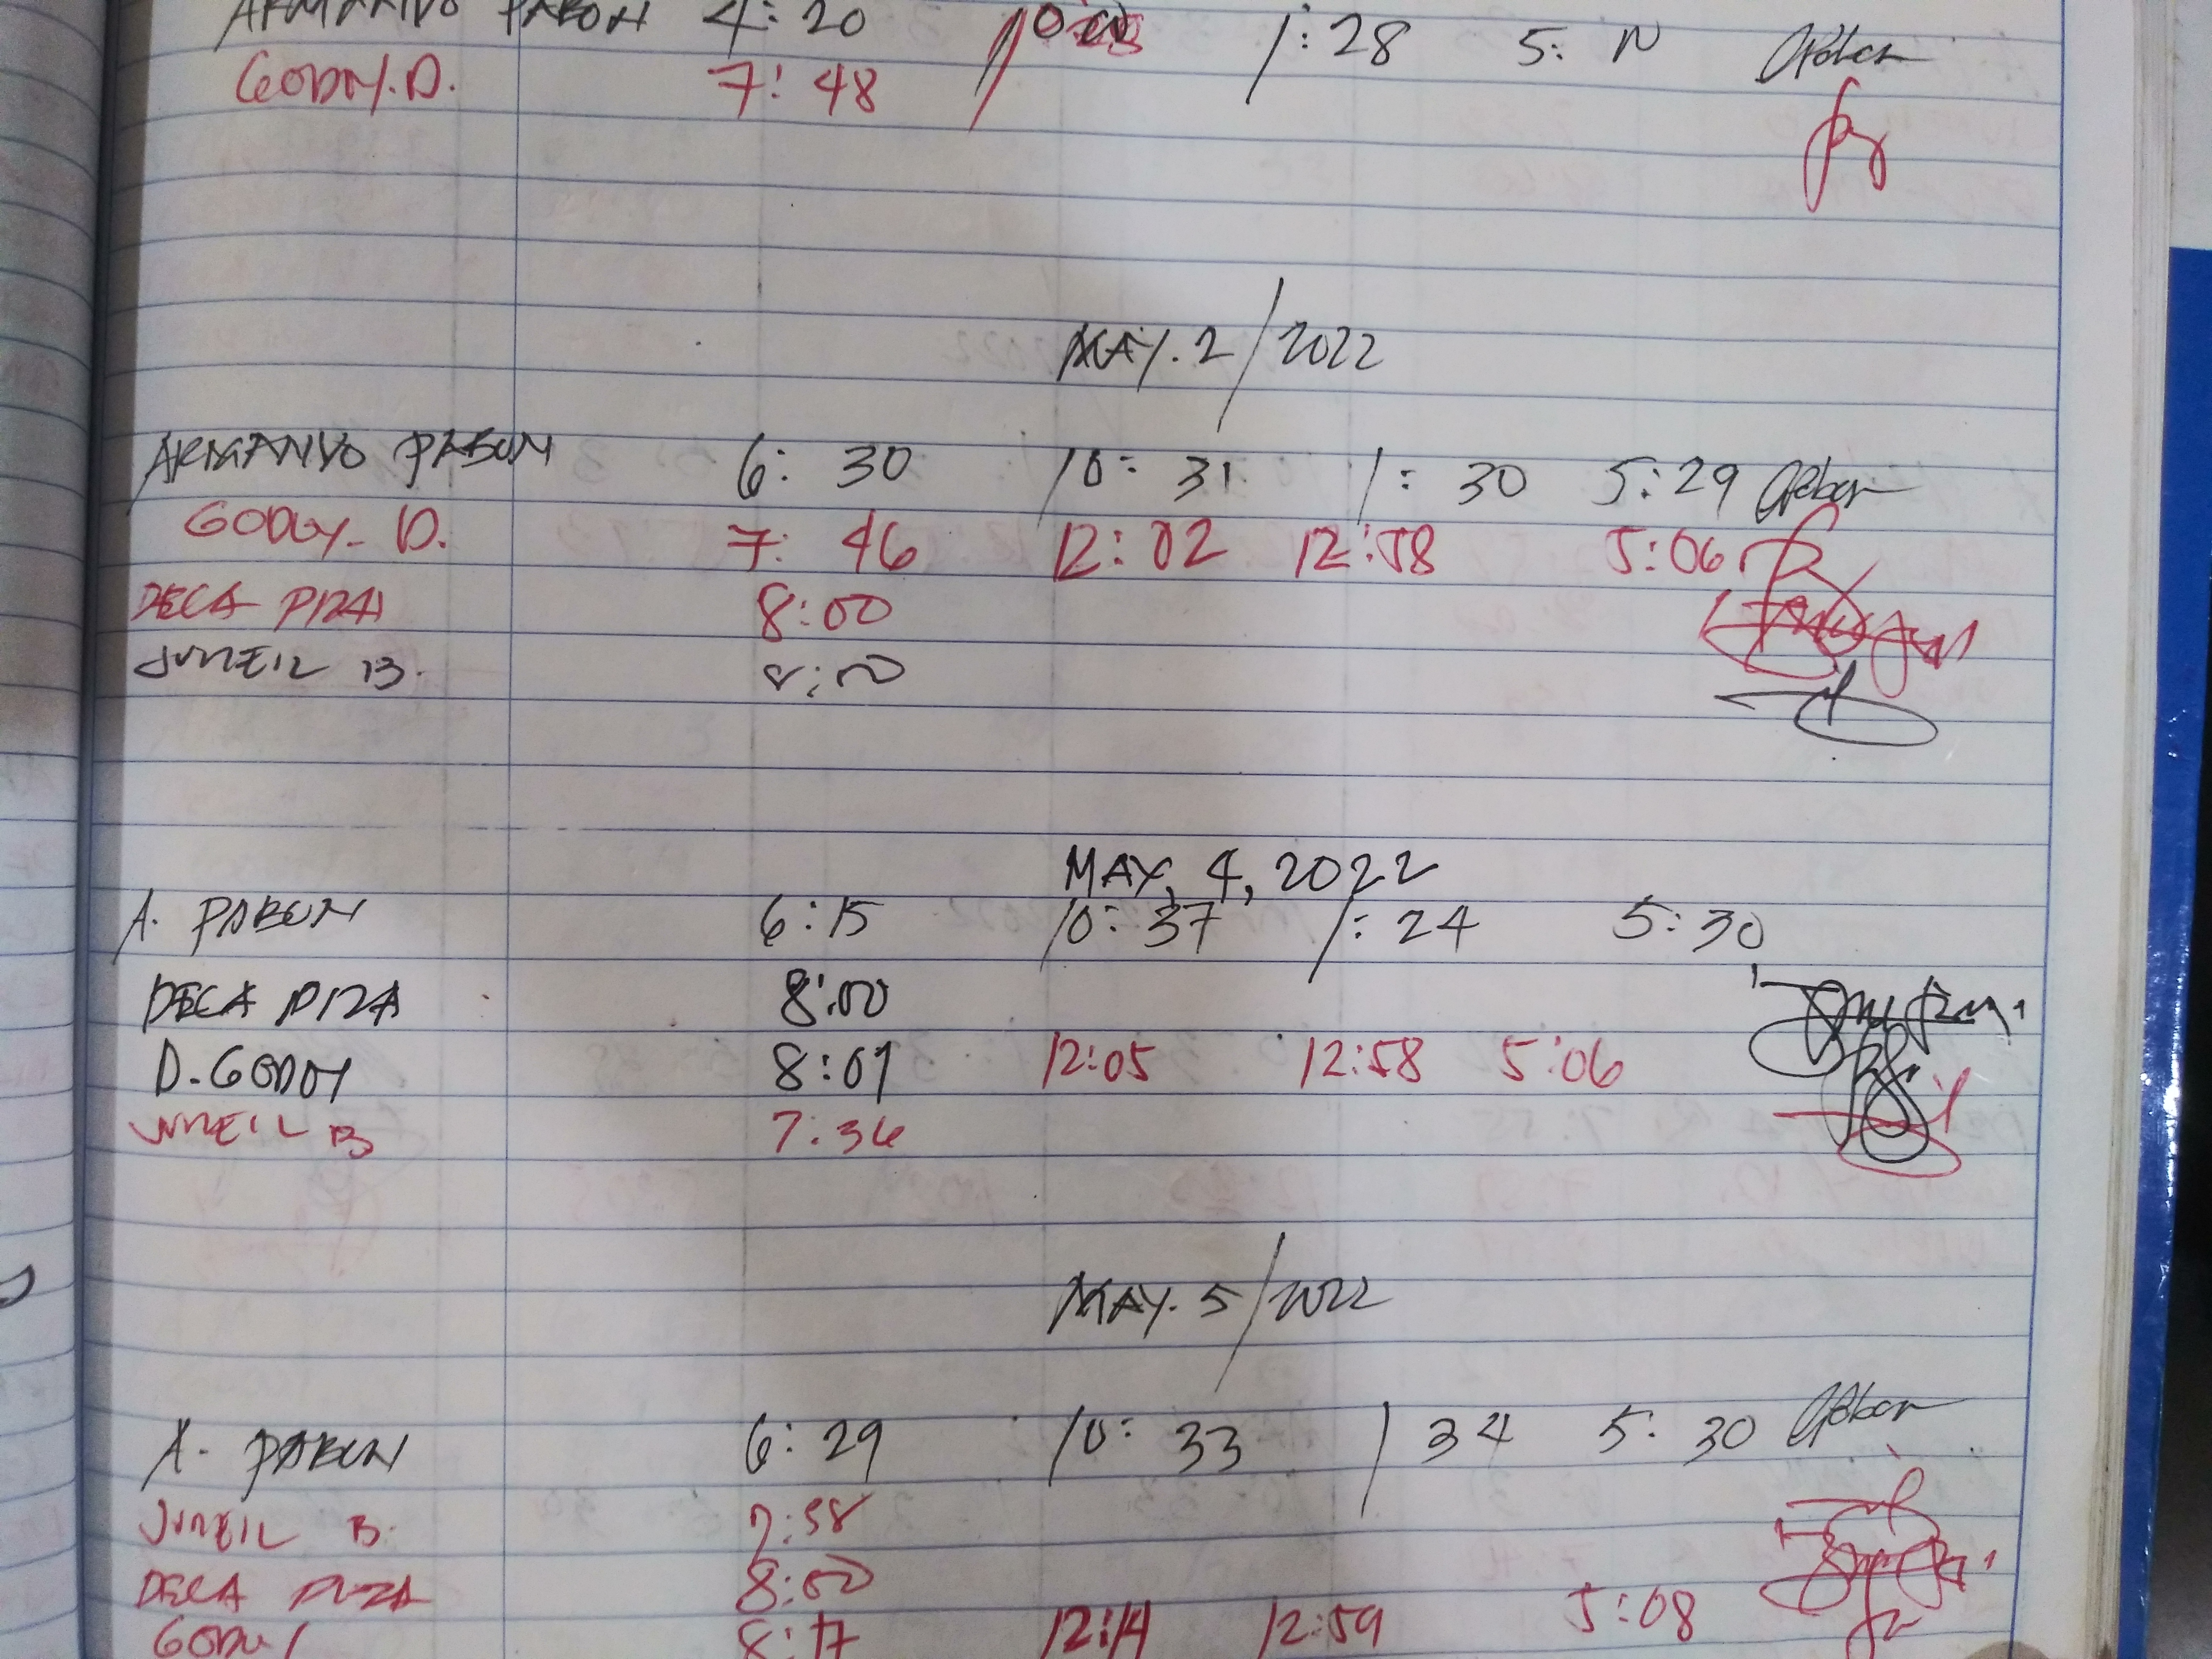 ARMANDO PABON 4:20 10 1:28 5: N
GODOY.D. 7:48
MAY.2/2022
ARMANDO PABON 6:30 10:31 1:30 5:29 Pabon
GODOY. D. 7:46 12:02 12:58 5:06
DECA PIZA 8:00
JUNEIL B. 8:00
MAY, 4, 2022
A. PABON 6:15 10:37 1:24 5:30
DECA PIZA 8:00
D. GODOY 8:01 12:05 12:58 5:06
JUNEIL B 7:36
MAY. 5/2022
A. PABON 6:29 10:33 1 34 5:30 Pabon
JUNEIL B. 7:58
DECA PIZA 8:00
GODOY 8:17 12:14 12:59 5:08